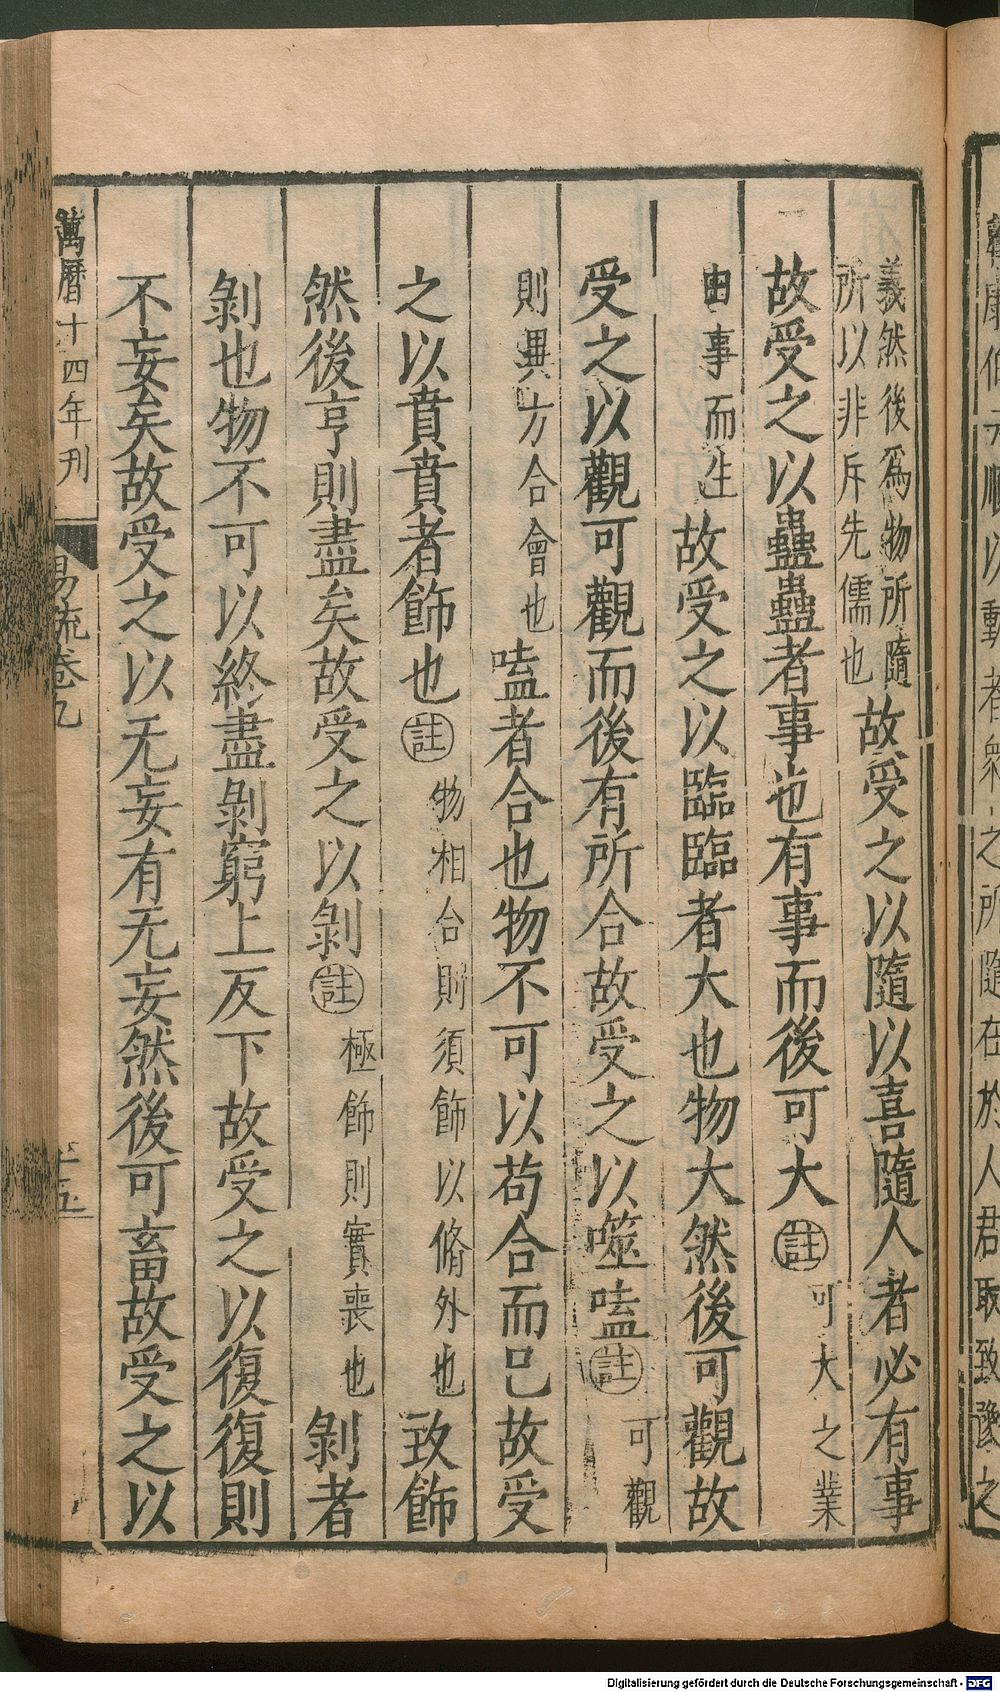 義然後爲物所隨
所以非斥先儒也
故受之以隨以喜隨人者必有事
故受之以蠱蠱者事也有事而後可大㊟可大之業
由事而生故受之以臨臨者大也物大然後可觀故
受之以觀可觀而後有所合故受之以噬嗑㊟可觀
則異方合會也嗑者合也物不可以苟合而已故受
之以賁賁者飾也㊟物相合則須飾以脩外也致飾
然後亨則盡矣故受之以剝㊟極飾則實喪也剝者
剝也物不可以終盡剝窮上反下故受之以復復則
不妄矣故受之以无妄有无妄然後可畜故受之以
萬曆十四年刊
易疏卷九
十五
順以動者衆之所隨在於人君取致豫之
Digitalisierung gefördert durch die Deutsche Forschungsgemeinschaft - DFG